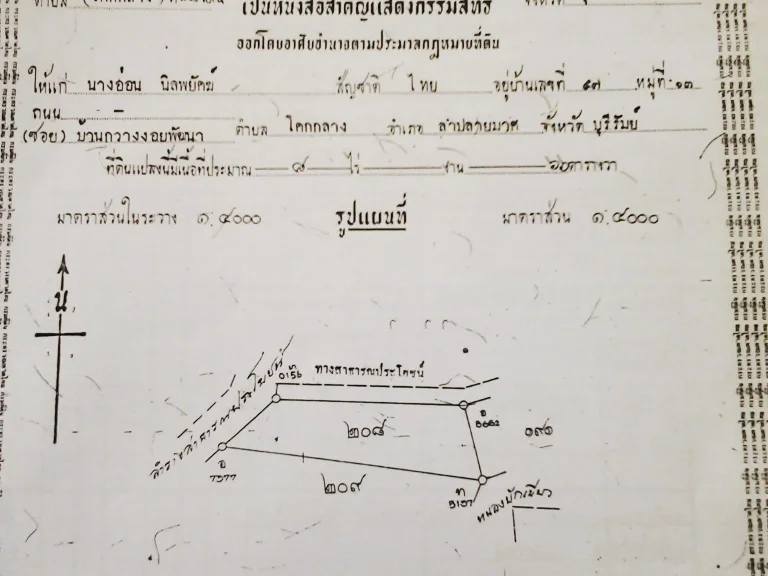 เป็นหนังสือสำคัญแสดงกรรมสิทธิ์
ออกโดยอาศัยอำนาจตามประมวลกฎหมายที่ดิน
ให้แก่ นางอ่อน นิลพยัคฆ์ สัญชาติ ไทย อยู่บ้านเลขที่ ๔๗ หมู่ที่ ๑๓
ถนน –
(ซอย) บ้านกวางงอยพัฒนา ตำบล โคกกลาง อำเภอ ลำปลายมาศ จังหวัด บุรีรัมย์
ที่ดินแปลงนี้มีเนื้อที่ประมาณ ๘ ไร่ งาน ตารางวา
มาตราส่วนในระวาง ๑:๔๐๐๐ รูปแผนที่ มาตราส่วน ๑:๔๐๐๐
น
ทางสาธารณประโยชน์
0156
๒๐๘
5662
๑๙๑
ลำรางสาธารณประโยชน์
7377
๒๐๙
5137